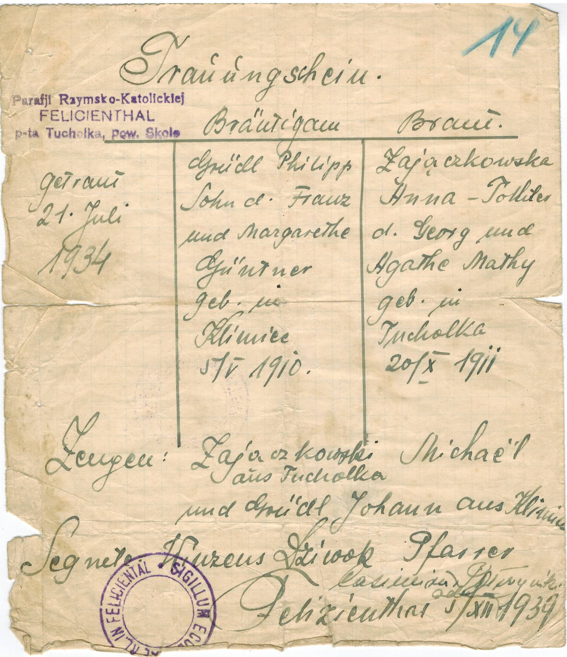 14
Trauungschein.
Parafji Rzymsko-Katolickiej
FELICIENTHAL
p-ta Tucholka, pow. Skole
Bräutigam Braut.
getraut
21. Juli
1934
Grüdl Philipp
Sohn d. Franz
und Margarethe
Güntner
geb. in
Klimiec
5/V 1910.
Zajączkowska
Anna - Tochter
d. Georg und
Agathe Mathy
geb. in
Tucholka
20/X 1911
Zeugen: Zajączkowski Michaël
aus Tucholka
und Grüdl Johann aus Klimiec
Segnete Dziwok Pfarrer
Felizienthal 5/XII 1939
SIGILLUM IN FELICIENTAL